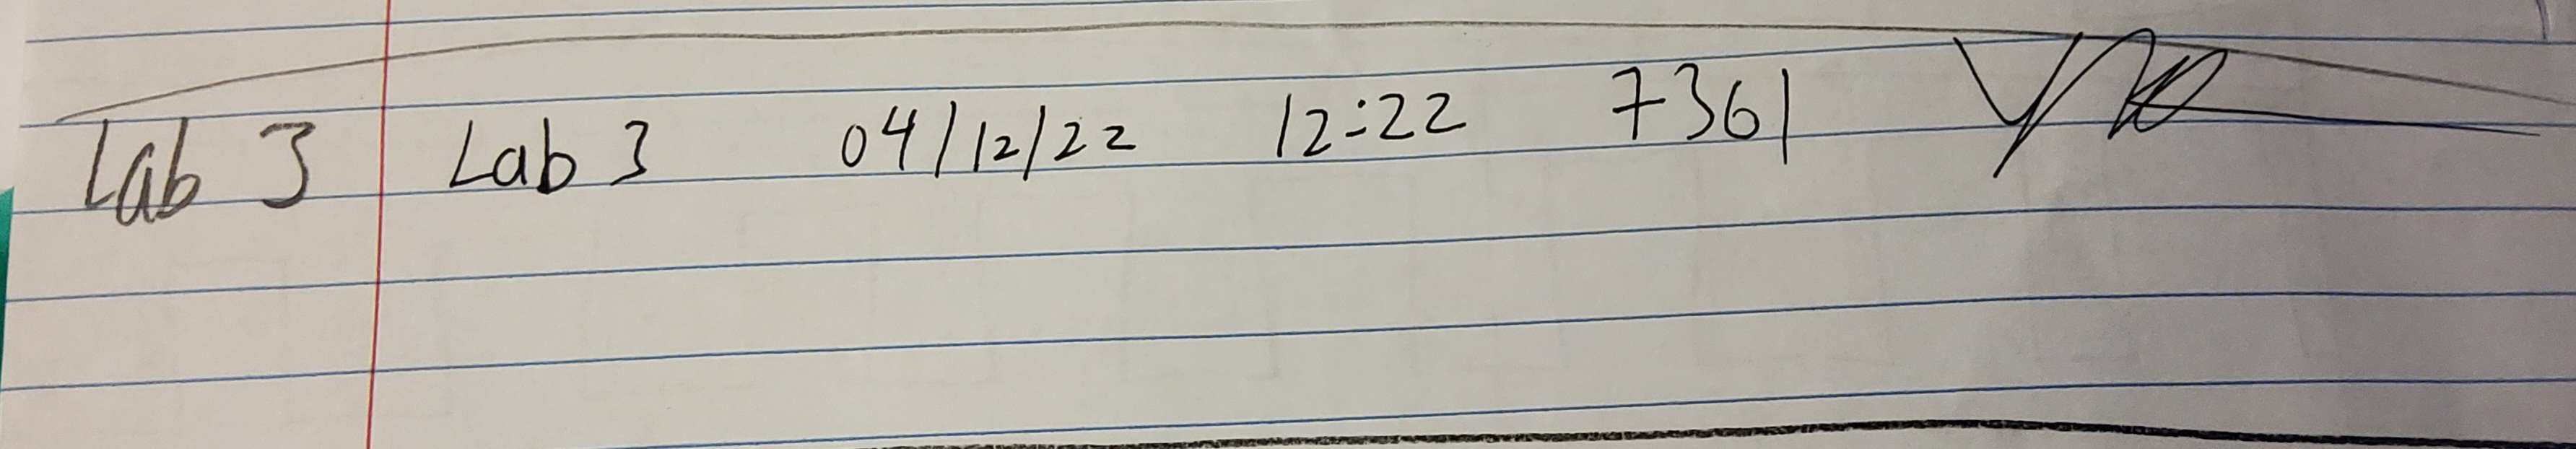 Lab 3 Lab 3 04/12/22 12:22 7361